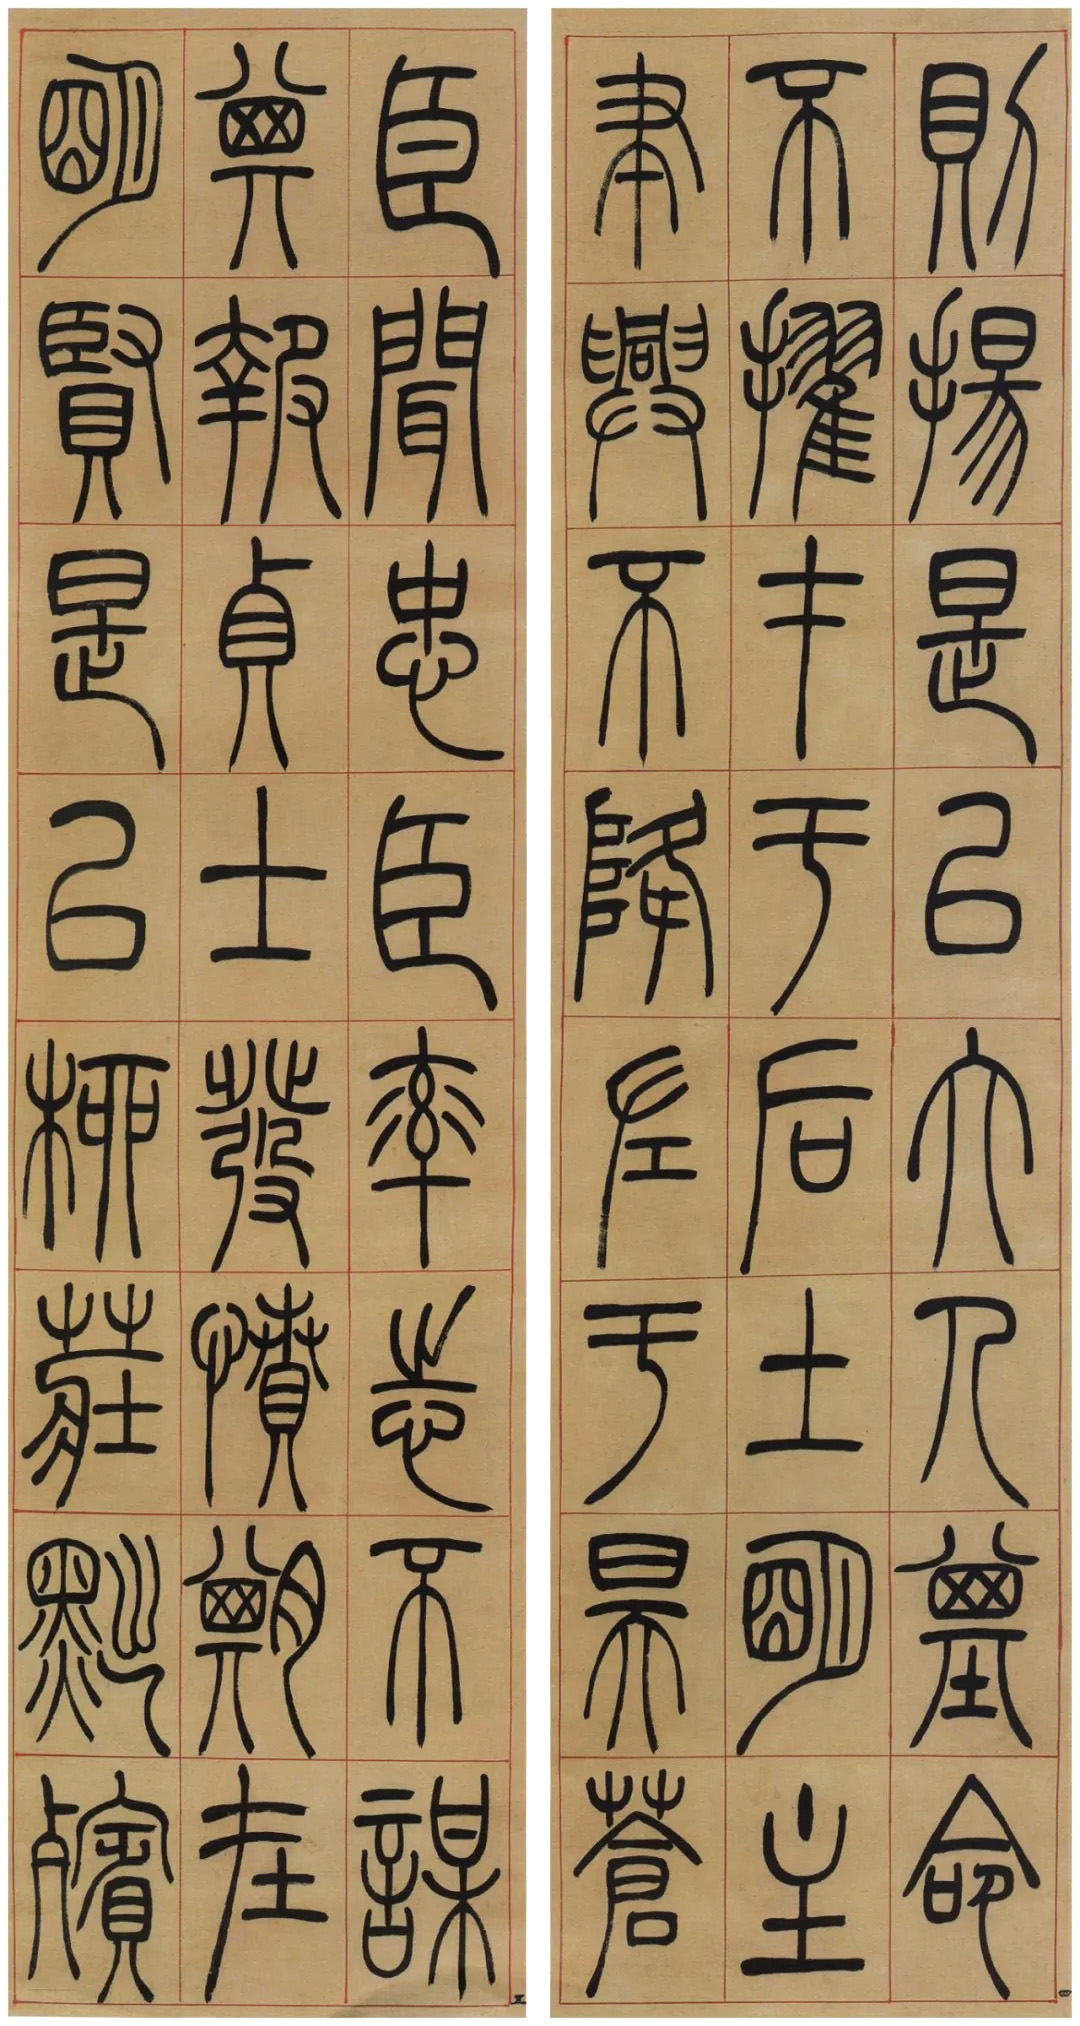 則揚是以大人基命
不擢才于后土明主
聿興不降左于昊蒼
四
臣聞忠臣率志不謀
其報貞士發憤期在
明賢是以柳莊黜殯
五